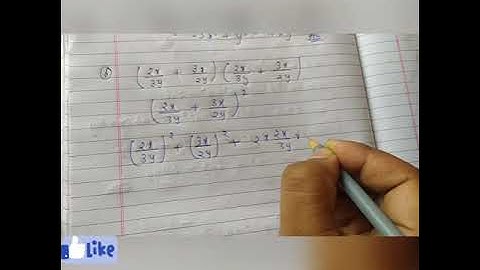 6 (2x/3y + 3x/2y) (2x/3y + 3x/2y)
(2x/3y + 3x/2y)²
(2x/3y)² + (3x/2y)² + 2x 2x/3y x
Like